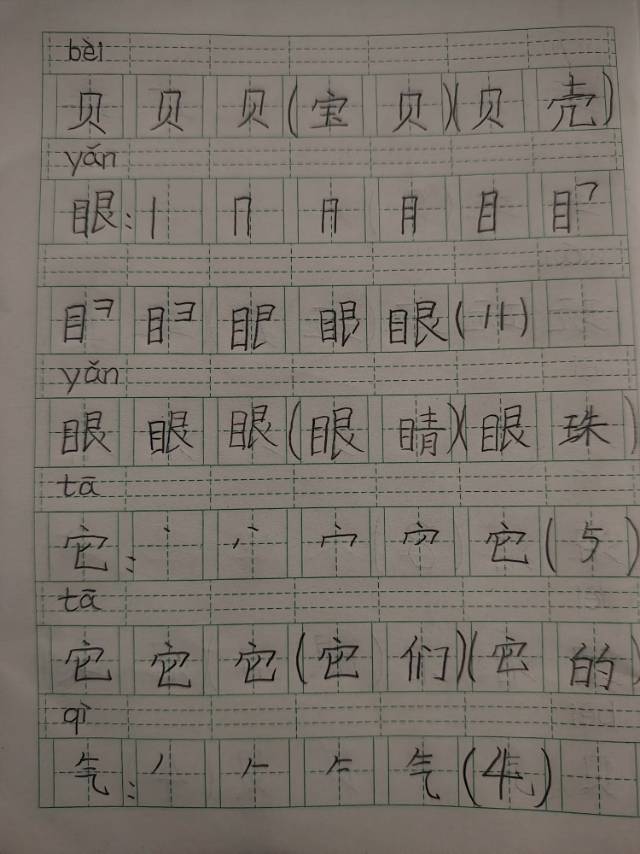 bèi
贝 贝 贝(宝 贝)(贝 壳)
yǎn
眼:丨 𠃍 月 月 目 目乛
目彐 目彐 眼 眼(11)
yǎn
眼 眼 眼(眼 睛)(眼 珠)
tā
它:丶 丷 宀 它(5)
tā
它 它 它(它 们)(它 的)
qì
气:丿 𠂉 气(4)